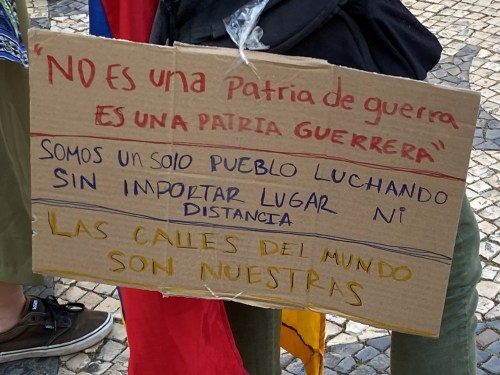 "NO ES una Patria de guerra
ES UNA PATRIA GUERRERA"
SOMOS UN SOLO PUEBLO LUCHANDO
SIN IMPORTAR LUGAR Ni
DISTANCIA
LAS CALLES DEL MUNDO
SON NUESTRAS